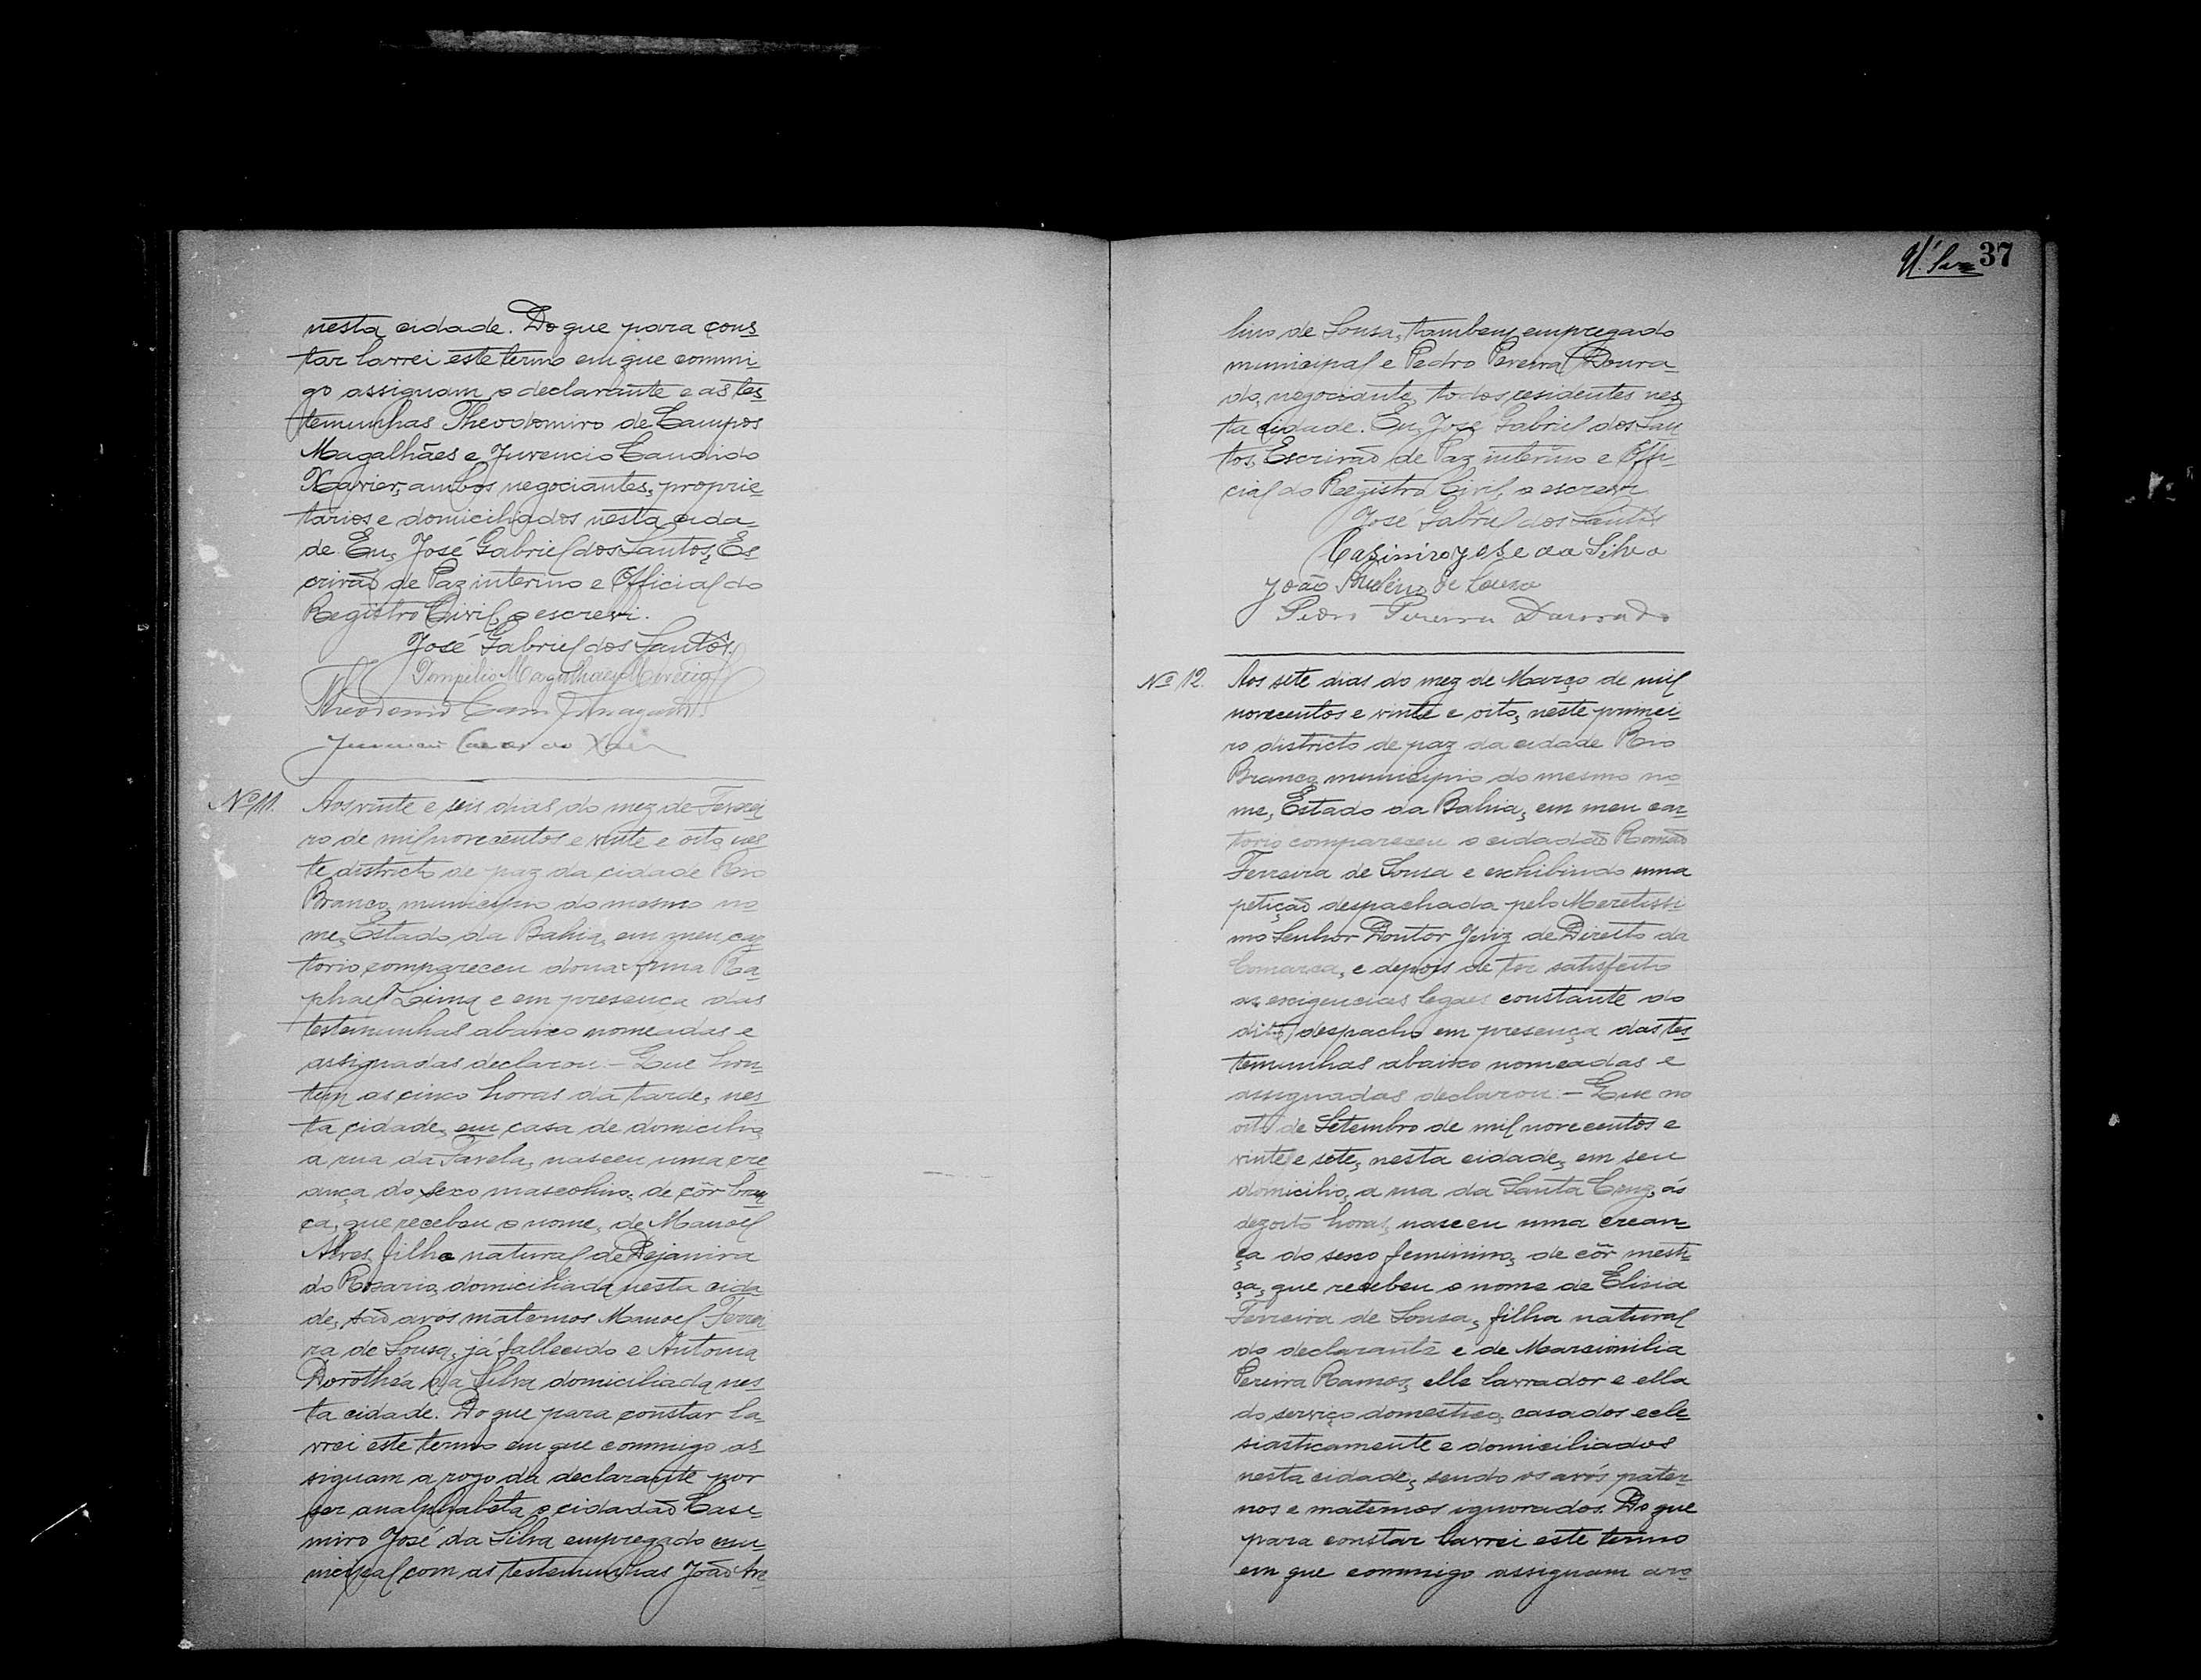 nesta cidade. Do que para cons
tar lavrei este termo em que commi-
go assignam o declarante e as tes
temunhas Theodomiro de Campos
Magalhães e Juvencio Candido
Xavier, ambos negociantes, proprie
tarios e domiciliados nesta cida-
de. Eu, José Gabriel dos Santos, Es
crivão de Paz interino e Official do
Registro Civil, o escrevi.
José Gabriel dos Santos
Pompilio Magalhães
Nº 11.
Aos vinte e seis dias do mez de Feverei
ro de mil novecentos e vinte e oito, nes
te districto de paz da cidade Rio
Branco, municipio do mesmo no
me, Estado da Bahia, em meu car
torio compareceu dona Anna Ra
phael Lima e em presença das
testemunhas abaixo nomeadas e
assignadas declarou: - Que hon
tem as cinco horas da tarde, nes
ta cidade, em casa de domicilio,
a rua da Favela, nasceu uma cre
ança do sexo mascolino, de côr bran
ca, que recebeu o nome, de Manoel
Alves, filho natural de Dejanira
do Rosario, domiciliada nesta cida
de, são avós maternos Manoel Ferrei
ra de Sousa, já fallecido e Antonia
Dorothéa da Silva domiciliada nes
ta cidade. Do que para constar la-
vrei este termo em que commigo as
signam a rogo da declarante por
ser analphabeta o cidadão Casi
miro José da Silva empregado mu
nicipal com as testemunhas João
37
lino de Sousa, tambem empregado
municipal e Pedro Pereira Doura
do, negociante, todos residentes nes
ta cidade. Eu, José Gabriel dos San
tos, Escrivão de Paz interino e Offi-
cial do Registro Civil, o escrevi
José Gabriel dos Santos
Casimiro José da Silva
João de Souza
Pedro Pereira Dourado
Nº 12.
Aos sete dias do mez de Março de mil
novecentos e vinte e oito, neste primei
ro districto de paz da cidade Rio
Branco, municipio do mesmo no
me, Estado da Bahia, em meu car
torio compareceu o cidadão Romão
Ferreira de Sousa e exhibindo uma
petição despachada pelo Meretissi
mo Senhor Doutor Juiz de Direito da
Comarca, e depois de ter satisfeito
as exigencias legaes constante do
dito despacho em presença das tes
temunhas abaixo nomeadas e
assignadas declarou: - Que no
oito de Setembro de mil novecentos e
vinte e sete, nesta cidade, em seu
domicilio, a rua da Santa Cruz, ás
dezoito horas, nasceu uma crean
ça do sexo feminino, de côr mesti
ça, que recebeu o nome de Elisia
Ferreira de Sousa, filha natural
do declarante e de Marcimilia
Pereira Ramos, elle lavrador e ella
do serviço domestico, casados ecle
siasticamente e domiciliados
nesta cidade, sendo os avós pater
nos e maternos ignorados. Do que
para constar lavrei este termo
em que commigo assignam a ro